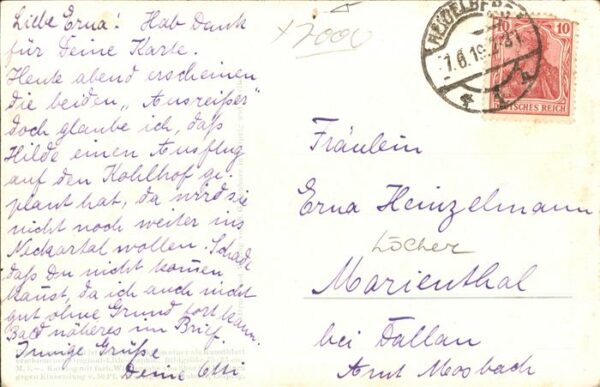 Liebe Erna! Hab Dank
für Deine Karte.
Heute abend erscheinen
die beiden „Ausreißer"
doch glaube ich, daß
Hilde einen Ausflug
auf den Kohlhof ge-
plant hat, da wird sie
nicht noch weiter ins
Neckartal wollen. Schade
daß Du nicht kommen
kannst, da ich auch nicht
gut ohne Grund fort kann.
Bald näheres im Brief.
Innige Grüße
Deine Etti
x7000
HEIDELBERG
10
DEUTSCHES REICH
Fräulein
Erna Heinzelmann
Löcher
Marienthal
bei Dallau
Amt Mosbach